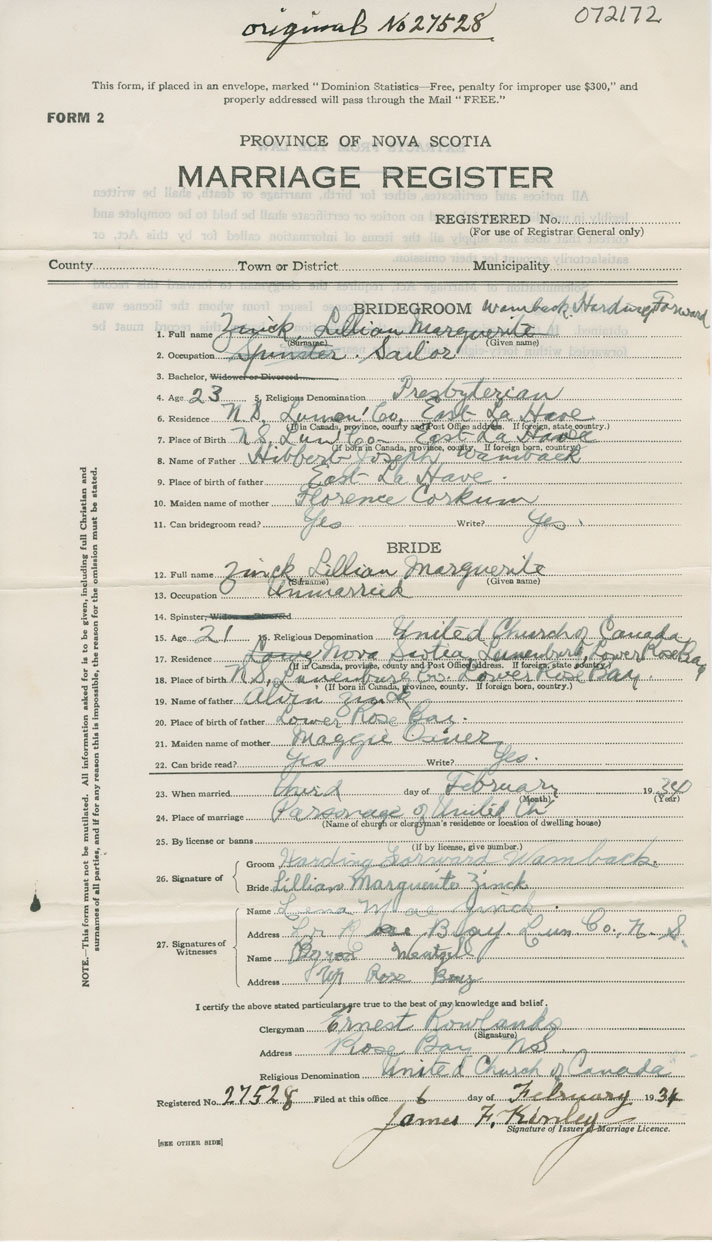 original No 27528
072172
This form, if placed in an envelope, marked "Dominion Statistics—Free, penalty for improper use $300," and
properly addressed will pass through the Mail "FREE."
FORM 2
PROVINCE OF NOVA SCOTIA
MARRIAGE REGISTER
REGISTERED No.
(For use of Registrar General only)
County Town or District Municipality
BRIDEGROOM Wamback. Harding Forward
1. Full name Zinck, Lillian Marguerite
(Surname) (Given name)
2. Occupation Spinster. Sailor
3. Bachelor, Widower or Divorced
4. Age 23 5. Religious Denomination Presbyterian
6. Residence N.S. Lunen' Co. East La Have
(If in Canada, province, county and Post Office address. If foreign, state country.)
7. Place of Birth N.S. Lun Co— East La Have
(If born in Canada, province, county. If foreign born, country.)
8. Name of Father Hibbert Joseph Wamback
9. Place of birth of father East La Have.
10. Maiden name of mother Florence Corkum
11. Can bridegroom read? Yes Write? Yes.
BRIDE
12. Full name Zinck Lillian Marguerite
(Surname) (Given name)
13. Occupation Unmarried
14. Spinster, Widow or Divorced
15. Age 21 16. Religious Denomination United Church of Canada
17. Residence Lowe Nova Scotia, Lunenburg, Lower Rose Bay
(If in Canada, province, county and Post Office address. If foreign, state country.)
18. Place of birth N.S., Lunenburg Co. Lower Rose Bay.
(If born in Canada, province, county. If foreign born, country.)
19. Name of father Alvin Zinck
20. Place of birth of father Lower Rose Bay.
21. Maiden name of mother Maggie Oxner
22. Can bride read? Yes Write? Yes.
23. When married third day of February 1934
(Month) (Year)
24. Place of marriage Parsonage of United Ch
(Name of church or clergyman's residence or location of dwelling house)
25. By license or banns
(If by license, give number.)
26. Signature of
Groom Harding Forward Wamback.
Bride Lillian Marguerite Zinck
27. Signatures of
Witnesses
Name Lena Mae Zinck
Address Lr Rose Bay. Lun Co., N. S.
Name Wentzell
Address Up Rose Bay
I certify the above stated particulars are true to the best of my knowledge and belief.
Clergyman Ernest Rowlands
(Signature)
Address Rose Bay NS.
Religious Denomination United Church of Canada
Registered No. 27528 Filed at this office 6 day of February 1934
James F. Kinley
Signature of Issuer of Marriage Licence.
[SEE OTHER SIDE]
NOTE.—This form must not be mutilated. All information asked for is to be given, including full Christian and
surnames of all parties, and if for any reason this is impossible, the reason for the omission must be stated.